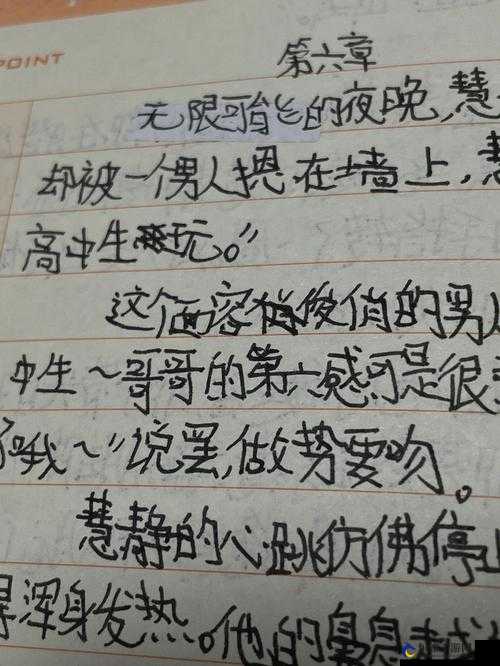 POINT
第六章
无限可能的夜晚，慧
却被一个男人摁在墙上，
高中生玩。”
这个面容俊俏的男
中生～哥哥的第六感可是很
哦～”说罢，做势要吻。
慧静的心跳仿佛停止
浑身发热。他的鼻息